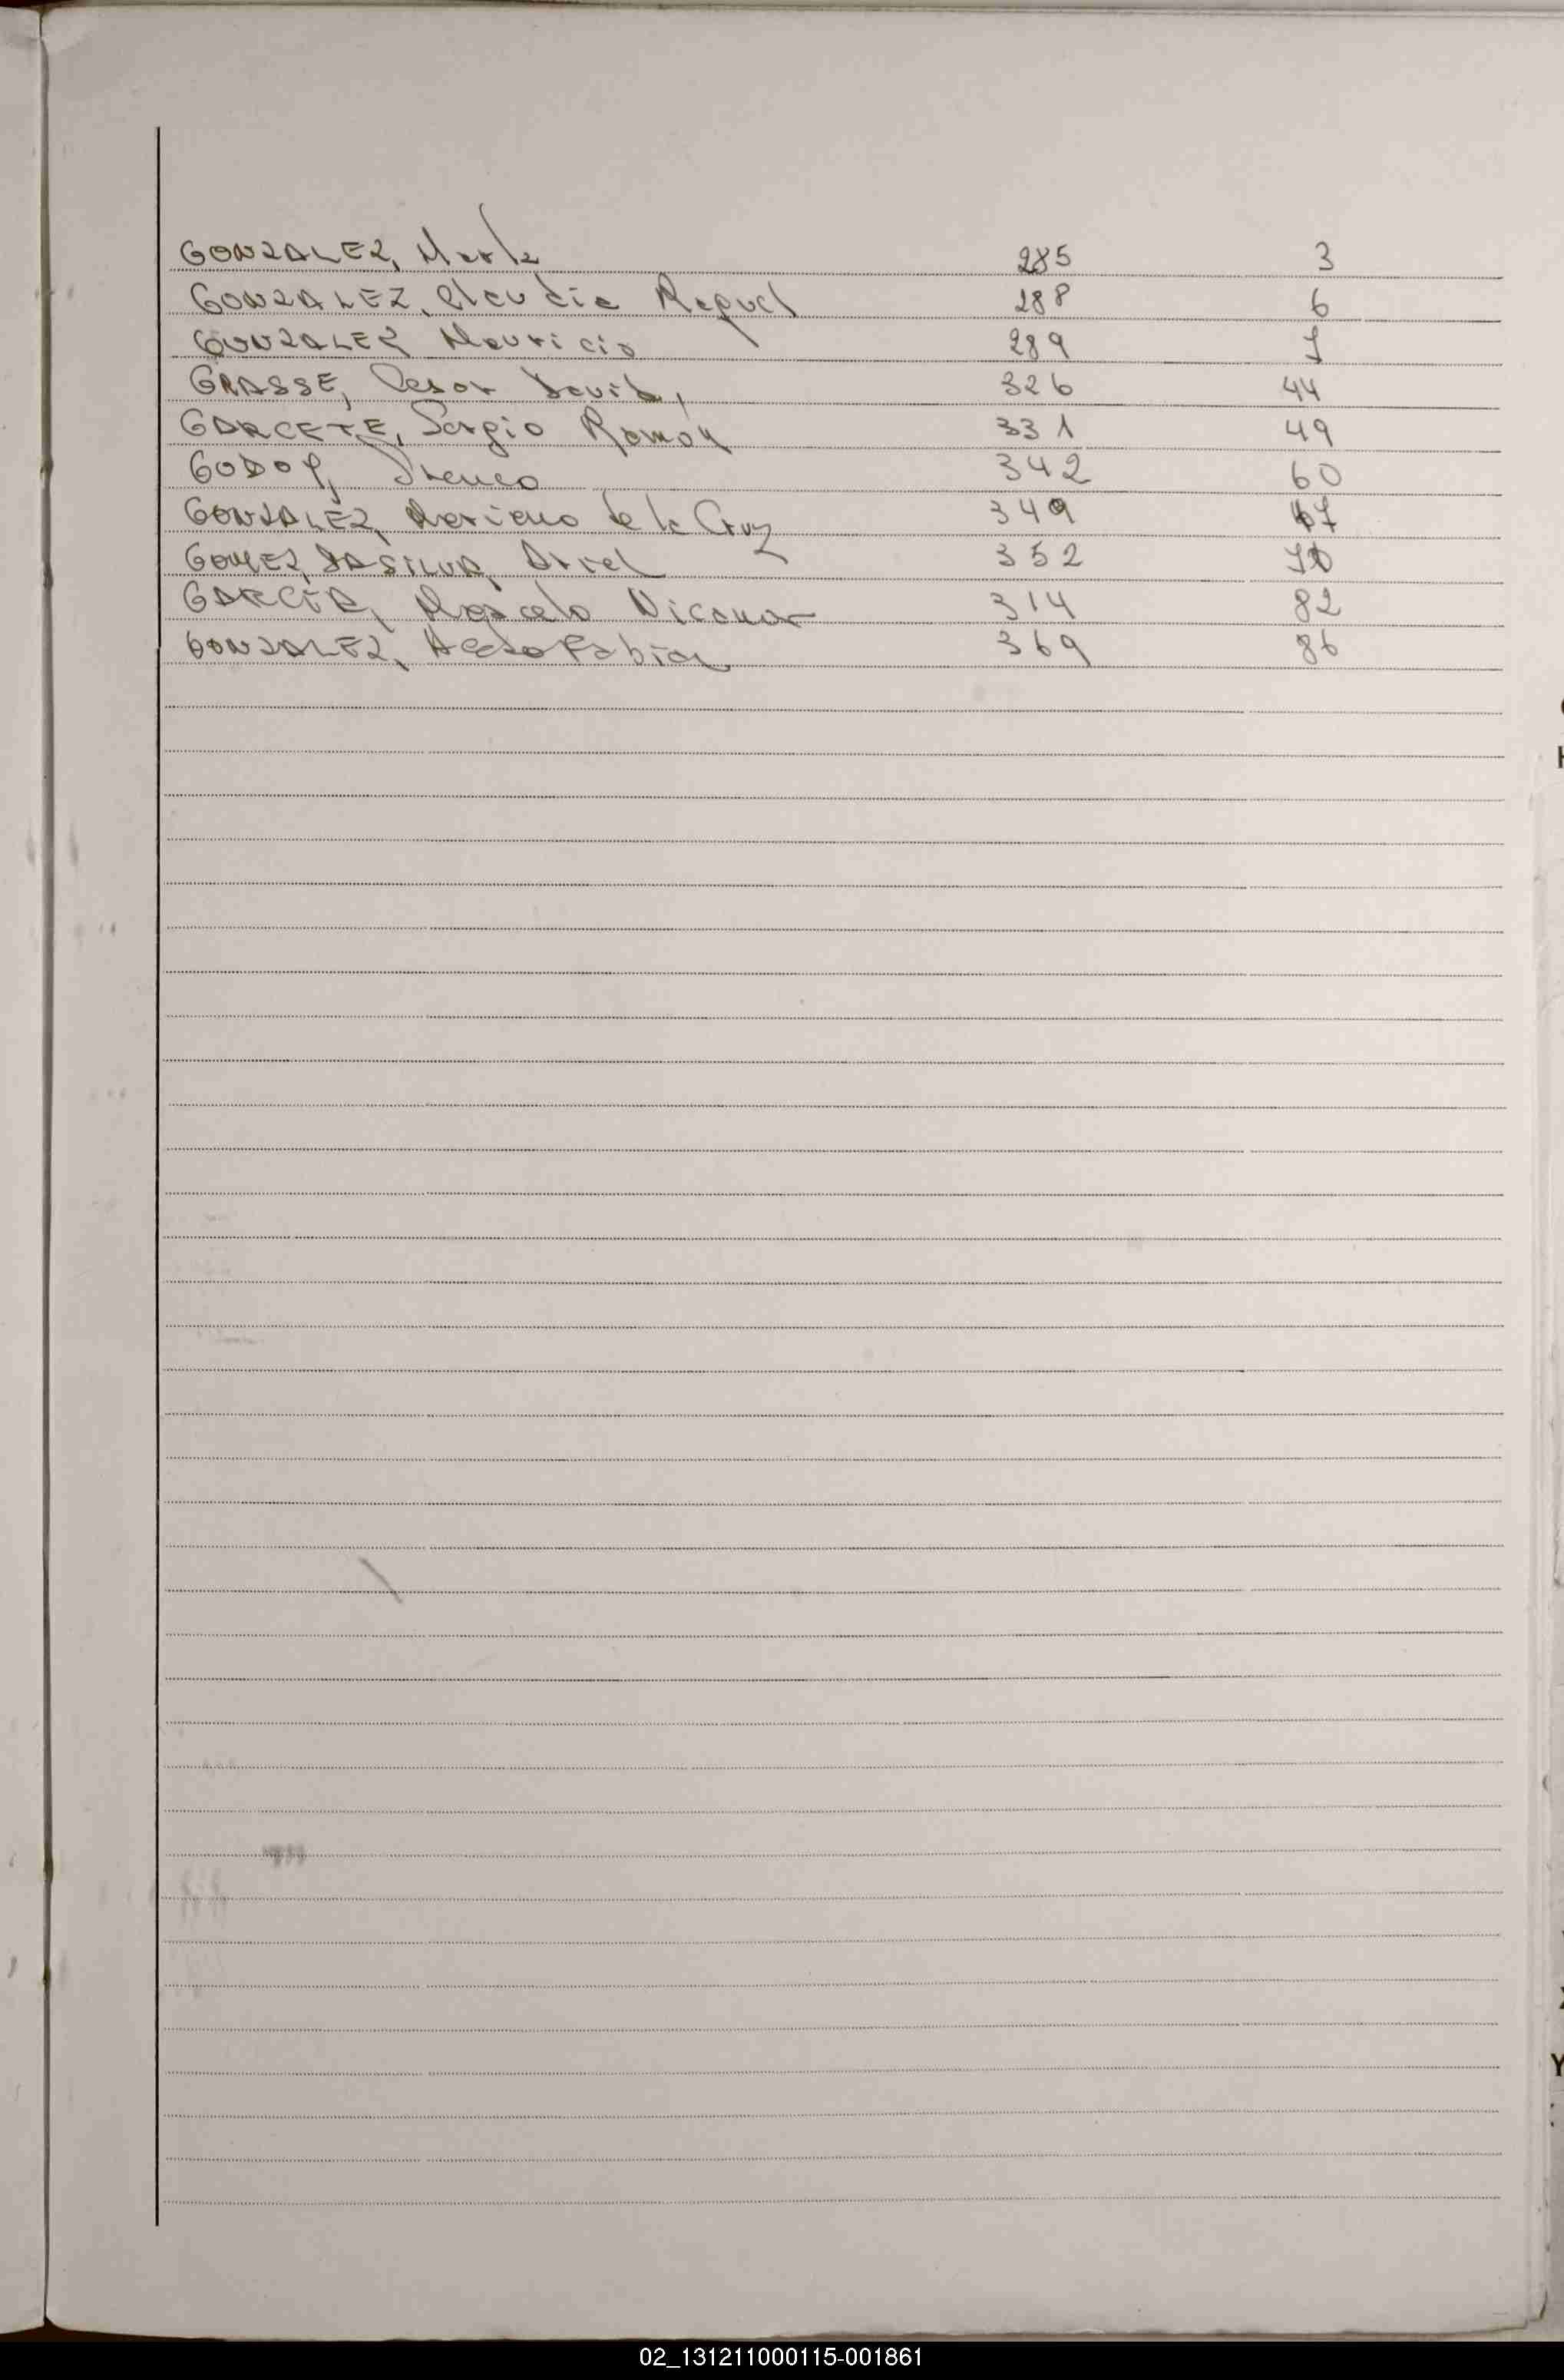 GONZALEZ, Marla 285 3
GONZALEZ, Claudia Raquel 288 6
GONZALEZ Mauricio 289 7
GRASSE, Cesar David, 326 44
GARCETE, Sergio Ramon 331 49
GODOY, 342 60
GONZALEZ, Mariano de la Cruz 349 67
GOMEZ DASILVA, Ariel 352 70
GARCIA, Marcelo Nicanor 314 82
GONZALEZ, Fabian 369 86
H
Y
02_131211000115-001861